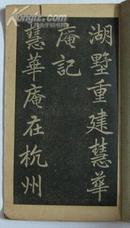 湖墅重建慧華
庵記
慧華庵在杭州